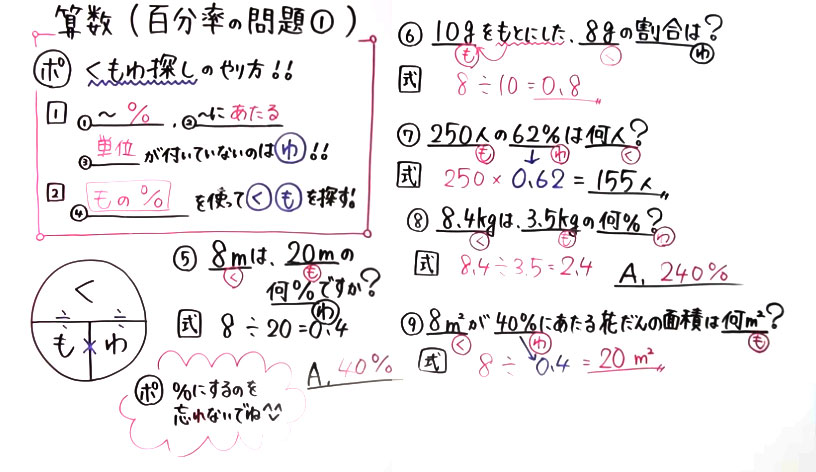 算数(百分率の問題①)
ポ くもわ探しのやり方!!
1 ①~%、②~にあたる
③単位が付いていないのはわ!!
2 ④もの%を使ってくもを探す!
く
÷ ÷
も×わ
⑤ 8mは、20mの
く も
何%ですか?
わ
式 8÷20=0.4
A. 40%
ポ %にするのを
忘れないでね^^
⑥ 10gをもとにした、8gの割合は?
も く わ
式 8÷10=0.8
⑦ 250人の62%は何人?
も わ く
式 250×0.62=155人
⑧ 8.4kgは、3.5kgの何%?
く も わ
式 8.4÷3.5=2.4 A. 240%
⑨ 8m²が40%にあたる花だんの面積は何m²?
く わ も
式 8÷0.4=20m²